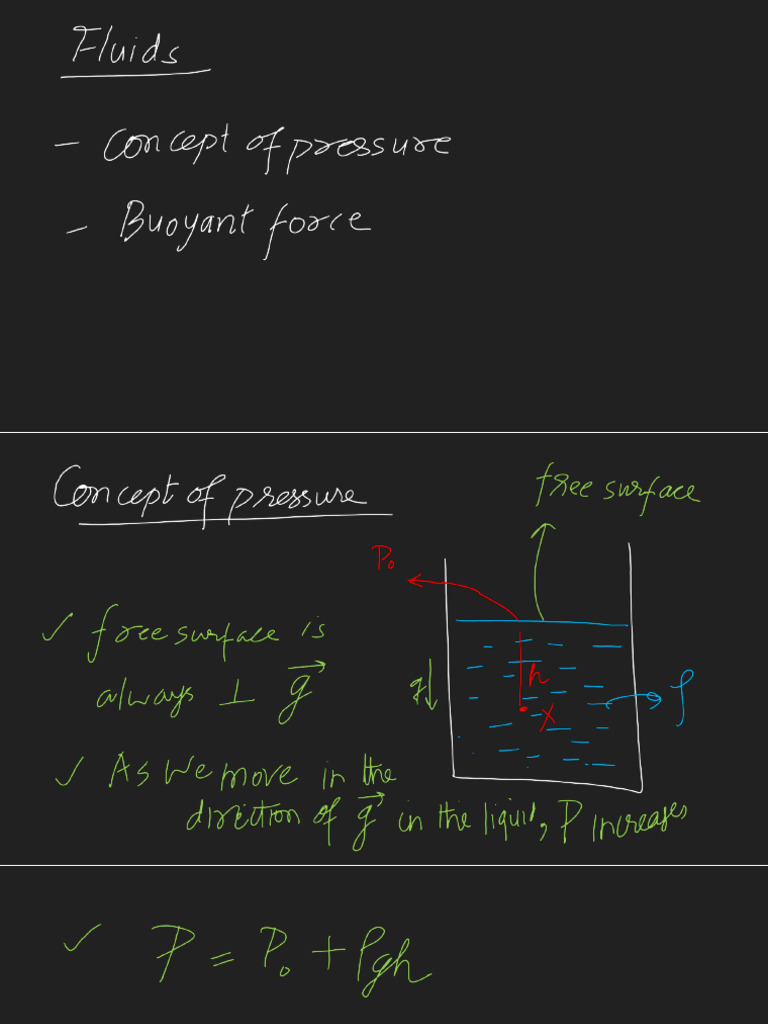 Fluids
- Concept of pressure
- Buoyant force
Concept of pressure
free surface
P₀
✓ free surface is
always ⊥ g⃗
g↓
h
x
ρ
✓ As we move in the
direction of g⃗ in the liquid, P increases
✓ P = P₀ + ρgh